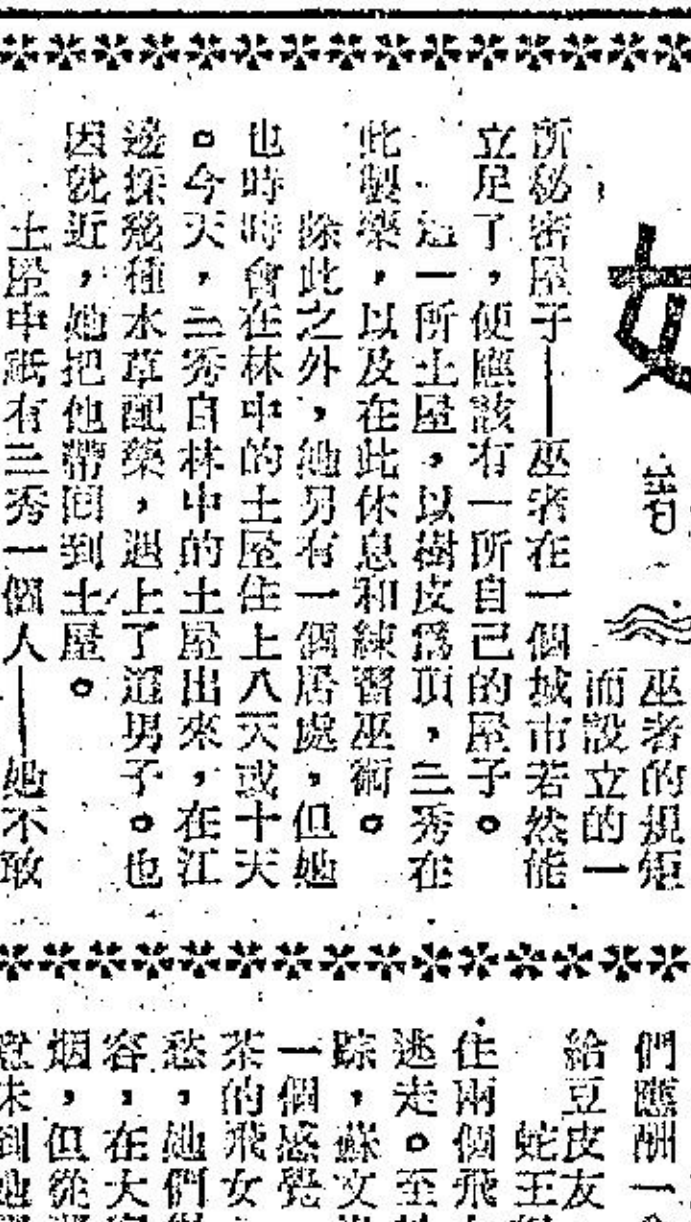 女
著
巫者的規矩
而設立的一
所秘密屋子——巫者在一個城市若然能
立足了，便應該有一所自己的屋子。
這一所土屋，以樹皮爲頂，三秀在
此製藥，以及在此休息和練習巫術。
除此之外，她另有一個居處，但她
也時時會在林中的土屋住上八天或十天
。今天，三秀自林中的土屋出來，在江
邊採幾種水草配藥，遇上了這男子。也
因就近，她把他帶回到土屋。
土屋中祇有三秀一個人——她不敢
們應酬一
給豆皮友
蛇王
住兩個飛
逃走。至
踪，蘇文
一個感覺
茶的飛女
愁，她們
容，在大
烟，但從
意未到她